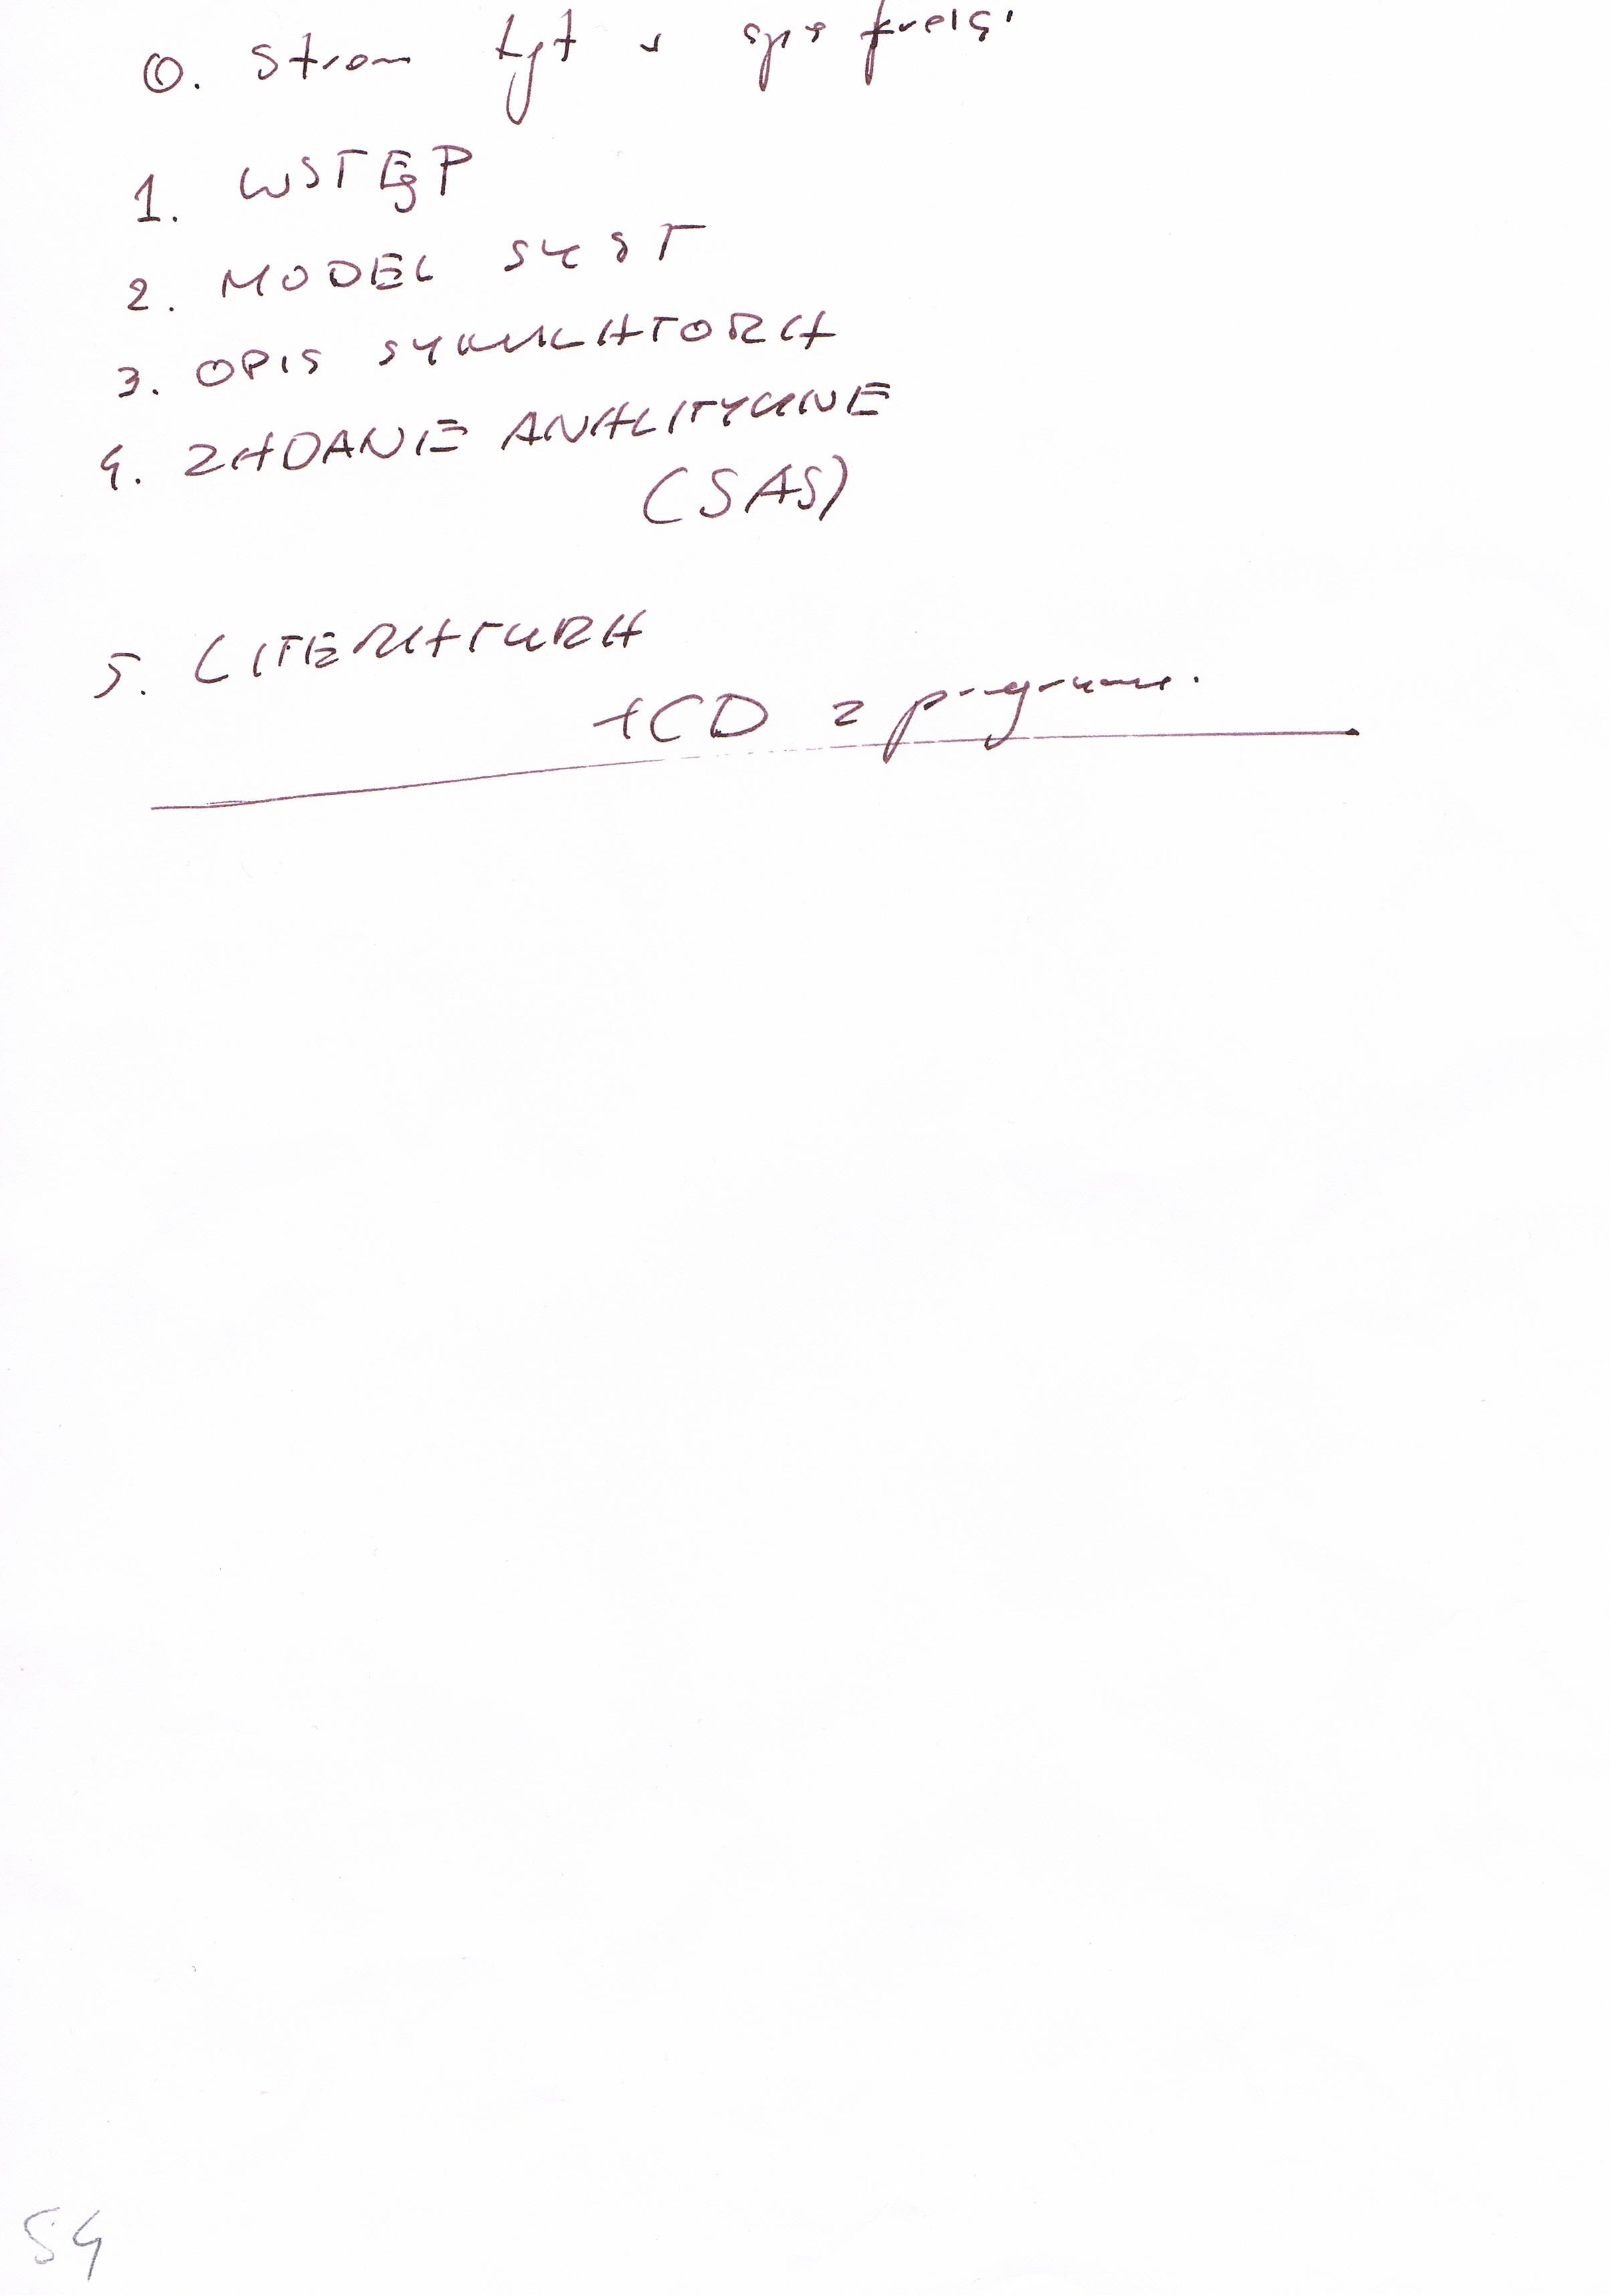 0. Stron tyt + spis treści
1. WSTĘP
2. MODEL SYST
3. OPIS SYMULATORA
4. ZADANIE ANALITYCZNE
(SAS)
5. LITERATURA
+CD z program.
54